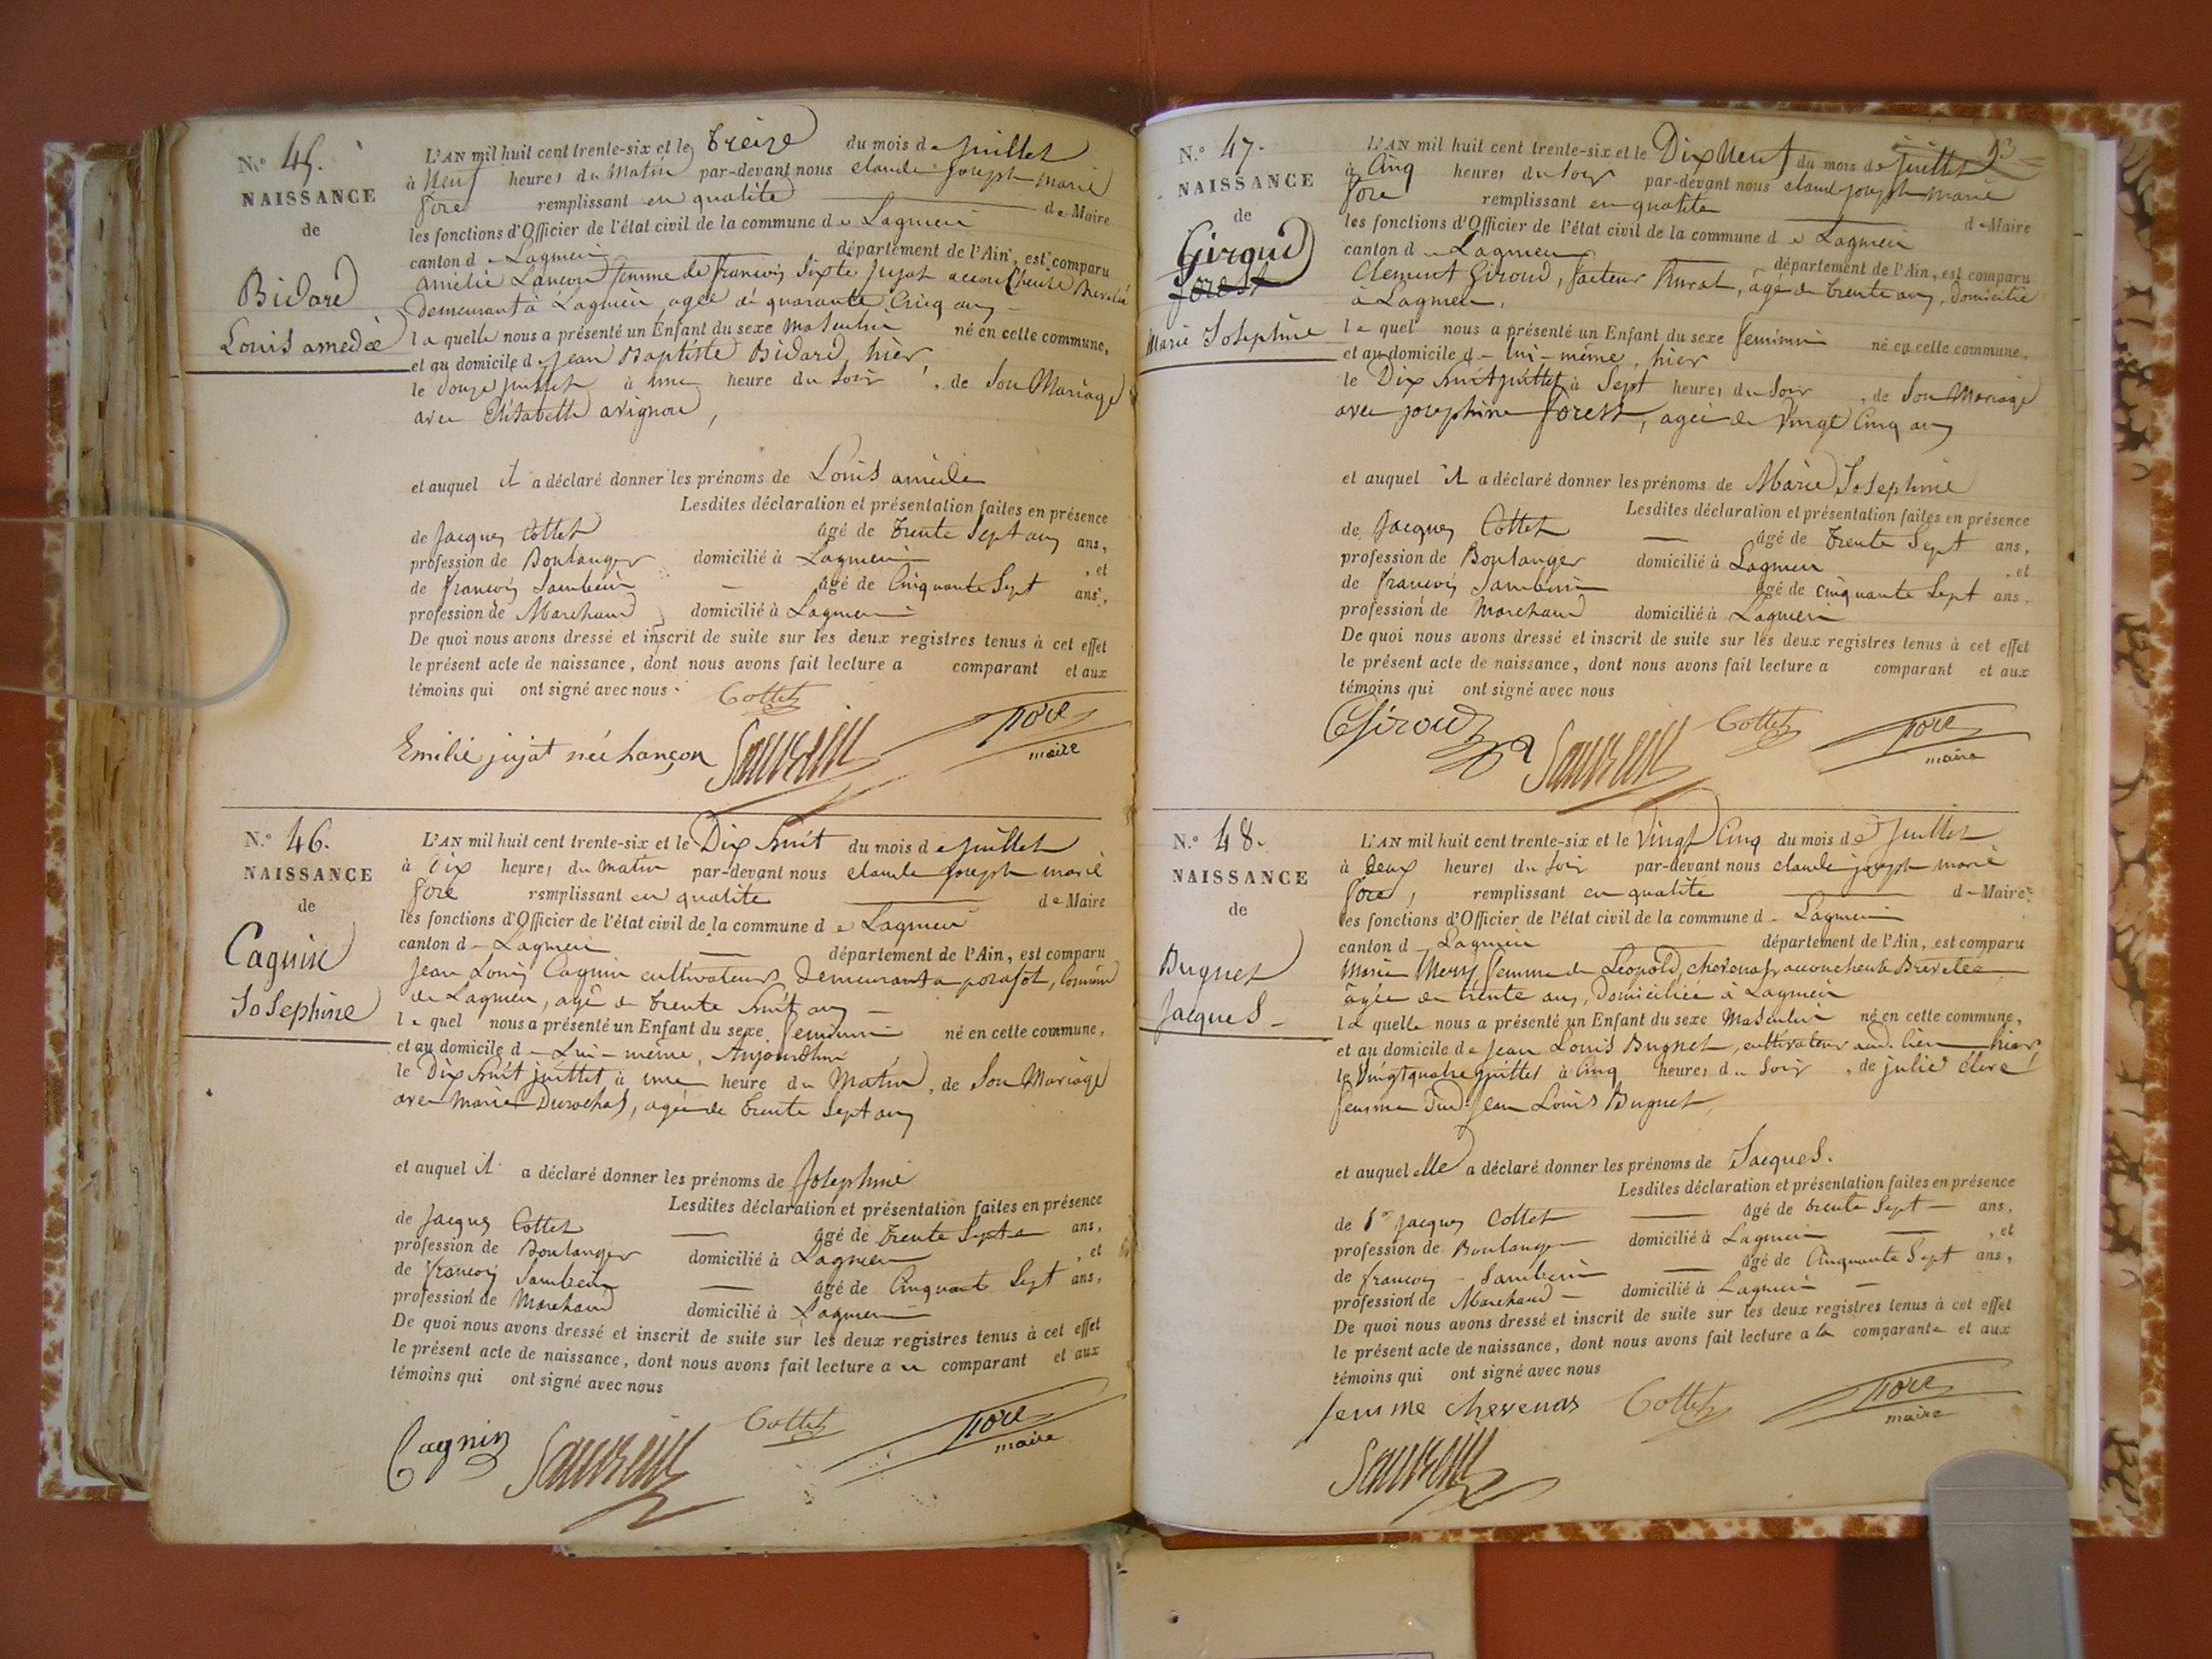 N.º 45.
NAISSANCE
de
Bidard
Louis amédée
L'AN mil huit cent trente-six et le treize du mois de juillet
à Neuf heures du Matin par-devant nous claude joseph marie
fore remplissant en qualité de Maire
les fonctions d'Officier de l'état civil de la commune de Lagnieu
canton de Lagnieu département de l'Ain, est comparu
amélie Lançon femme de francois Sixte jujat accoucheuse Brevetée
Demeurant à Lagnieu, agée de quarante Cinq ans
laquelle nous a présenté un Enfant du sexe masculin né en cette commune,
et au domicile de jean Baptiste Bidard, hier
le douze juillet à une heure du Soir, de Son Mariage
avec Elisabeth avignon,
et auquel il a déclaré donner les prénoms de Louis amédée
Lesdites déclaration et présentation faites en présence
de Jacques Cottet âgé de trente Sept ans ans,
profession de Boulanger domicilié à Lagnieu, et
de francois Sambein âgé de Cinquante Sept ans,
profession de Marchand domicilié à Lagnieu
De quoi nous avons dressé et inscrit de suite sur les deux registres tenus à cet effet
le présent acte de naissance, dont nous avons fait lecture a comparant et aux
témoins qui ont signé avec nous.
Cottet
Emilie jujat née Lançon fore
maire
N.º 46.
NAISSANCE
de
Cagnin
Josephine
L'AN mil huit cent trente-six et le Dix huit du mois de juillet
à Dix heures du matin par-devant nous claude joseph marie
fore remplissant en qualité de Maire
les fonctions d'Officier de l'état civil de la commune de Lagnieu
canton de Lagnieu département de l'Ain, est comparu
Jean Louis Cagnin cultivateur, Demeurant a posafol, commune
de Lagnieu, agé de trente huit ans
lequel nous a présenté un Enfant du sexe feminin né en cette commune,
et au domicile de Lui-même, Aujourdhui
le Dix huit juillet à une heure du Matin, de Son Mariage
avec marie Durochat, agée de trente Sept ans
et auquel il a déclaré donner les prénoms de Josephine
Lesdites déclaration et présentation faites en présence
de Jacques Cottet âgé de trente Sept ans,
profession de Boulanger domicilié à Lagnieu, et
de francois Sambein âgé de Cinquante Sept ans,
profession de Marchand domicilié à Lagnieu
De quoi nous avons dressé et inscrit de suite sur les deux registres tenus à cet effet
le présent acte de naissance, dont nous avons fait lecture au comparant et aux
témoins qui ont signé avec nous
Cagnin Cottet fore
maire
N.º 47.
NAISSANCE
de
Giroud
forest
Marie Josephine
L'AN mil huit cent trente-six et le Dix Neuf du mois de juillet
à Cinq heures du Soir par-devant nous claude joseph marie
fore remplissant en qualité de Maire
les fonctions d'Officier de l'état civil de la commune de Lagnieu
canton de Lagnieu département de l'Ain, est comparu
Clement Giroud, facteur Rural, agé de trente ans, domicilié
à Lagnieu,
lequel nous a présenté un Enfant du sexe feminin né en cette commune,
et au domicile de lui-même, hier
le Dix huit juillet à Sept heures du Soir, de Son Mariage
avec josephine forest, agée de Vingt Cinq ans
et auquel il a déclaré donner les prénoms de Marie Josephine
Lesdites déclaration et présentation faites en présence
de Jacques Cottet âgé de trente Sept ans,
profession de Boulanger domicilié à Lagnieu, et
de francois Sambein âgé de cinquante Sept ans,
profession de Marchand domicilié à Lagnieu
De quoi nous avons dressé et inscrit de suite sur les deux registres tenus à cet effet
le présent acte de naissance, dont nous avons fait lecture a comparant et aux
témoins qui ont signé avec nous
CGiroud Cottet fore
maire
N.º 48.
NAISSANCE
de
Bugnet
Jacques
L'AN mil huit cent trente-six et le Vingt Cinq du mois de Juillet
à deux heures du Soir par-devant nous claude joseph marie
fore, remplissant en qualité de Maire
les fonctions d'Officier de l'état civil de la commune de Lagnieu
canton de Lagnieu département de l'Ain, est comparu
Marie Mery femme de Leopold chevenas accoucheuse Brevetée
âgée de trente ans, domiciliée à Lagnieu
laquelle nous a présenté un Enfant du sexe Masculin né en cette commune,
et au domicile de Jean Louis Bugnet, cultivateur aud. lieu hier
le Vingt quatre juillet à Cinq heures du Soir, de julie clere
femme dud. Jean Louis Bugnet,
et auquel elle a déclaré donner les prénoms de Jacques.
Lesdites déclaration et présentation faites en présence
de Sr jacques Cottet âgé de trente Sept ans,
profession de Boulanger domicilié à Lagnieu, et
de francois Sambein âgé de Cinquante Sept ans,
profession de Marchand domicilié à Lagnieu
De quoi nous avons dressé et inscrit de suite sur les deux registres tenus à cet effet
le présent acte de naissance, dont nous avons fait lecture a la comparante et aux
témoins qui ont signé avec nous
femme chevenas Cottet fore
maire